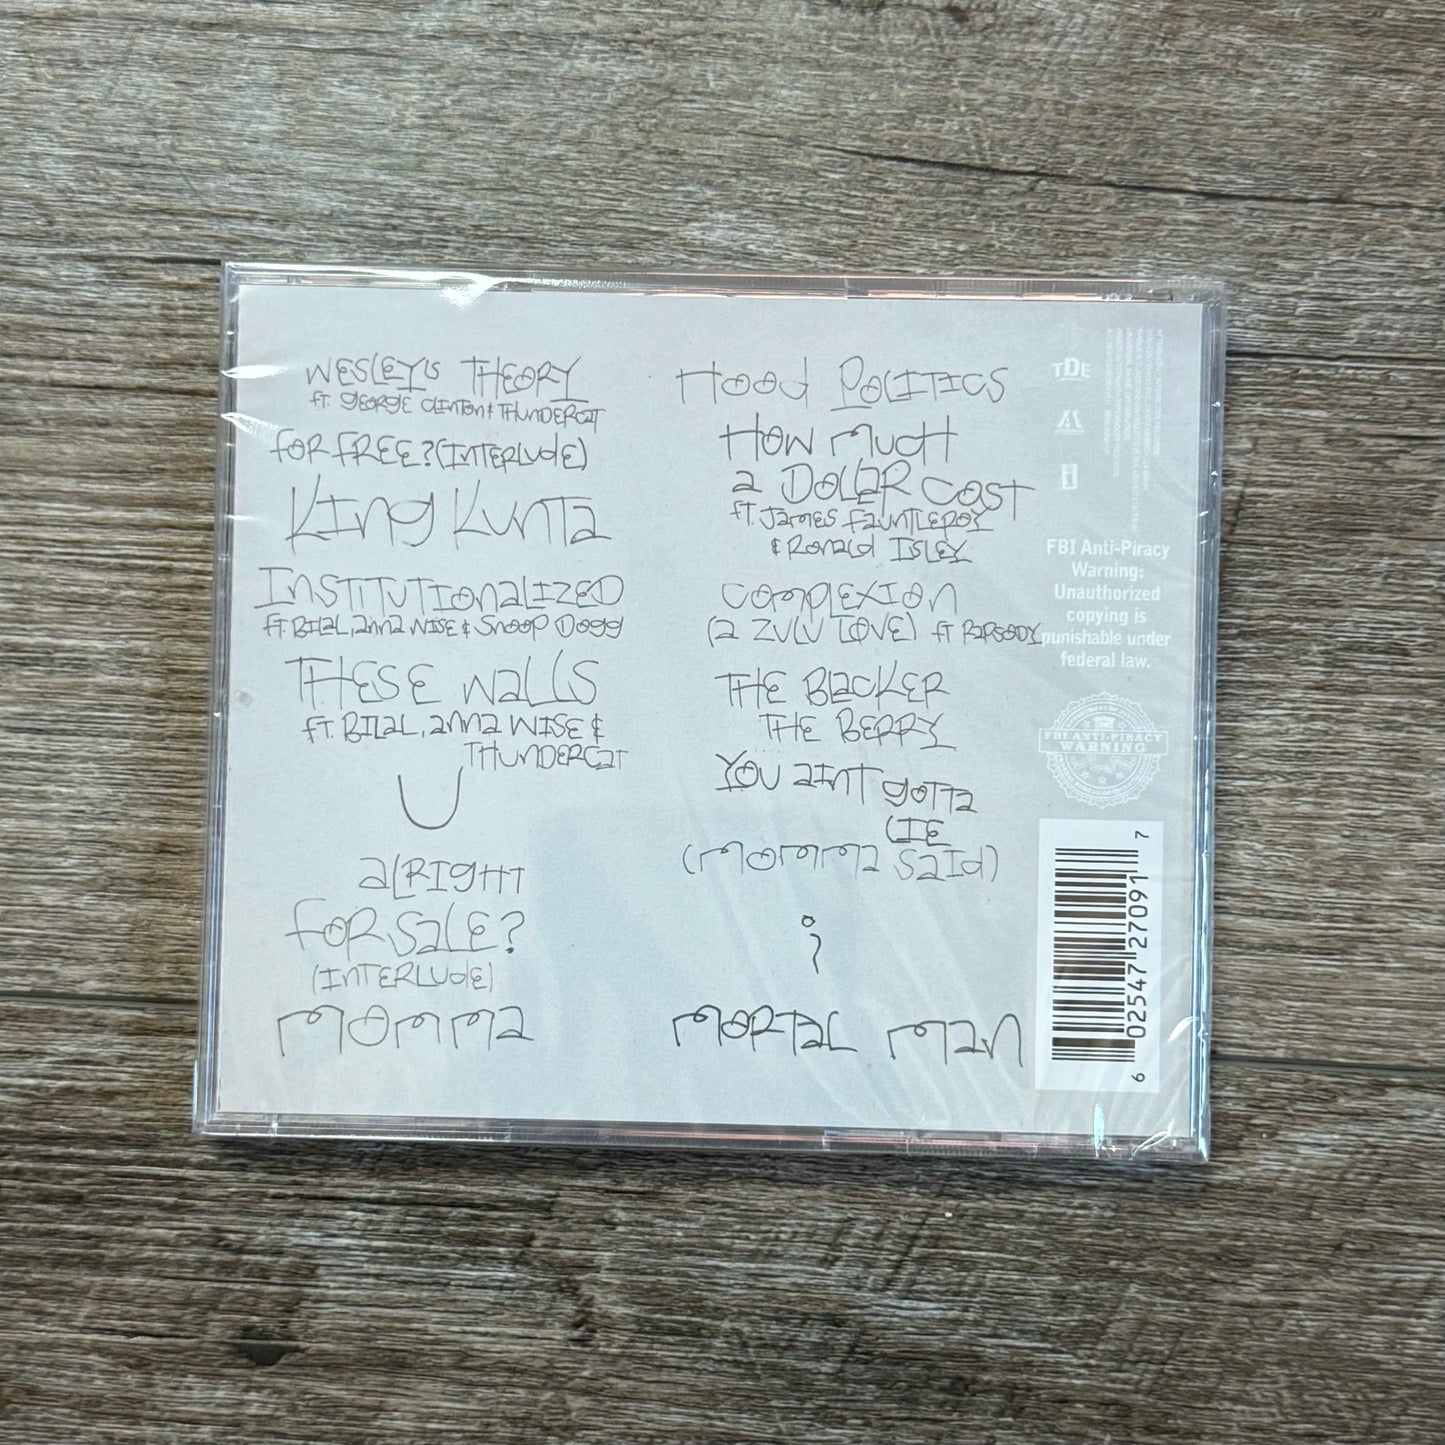 WESLEY'S THEORY
FT. GEORGE CLINTON & THUNDERCAT
FOR FREE? (INTERLUDE)
KING KUNTA
INSTITUTIONALIZED
FT. BILAL, ANNA WISE & SNOOP DOGG
THESE WALLS
FT. BILAL, ANNA WISE &
THUNDERCAT
U
ALRIGHT
FOR SALE?
(INTERLUDE)
MOMMA
HOOD POLITICS
HOW MUCH
A DOLLAR COST
FT. JAMES FAUNTLEROY
& RONALD ISLEY
COMPLEXION
(A ZULU LOVE) FT RAPSODY
THE BLACKER
THE BERRY
YOU AINT GOTTA
LIE
(MOMMA SAID)
i
MORTAL MAN
TDE
FBI Anti-Piracy
Warning:
Unauthorized
copying is
punishable under
federal law.
FBI ANTI-PIRACY
WARNING
6 02547 27091 7